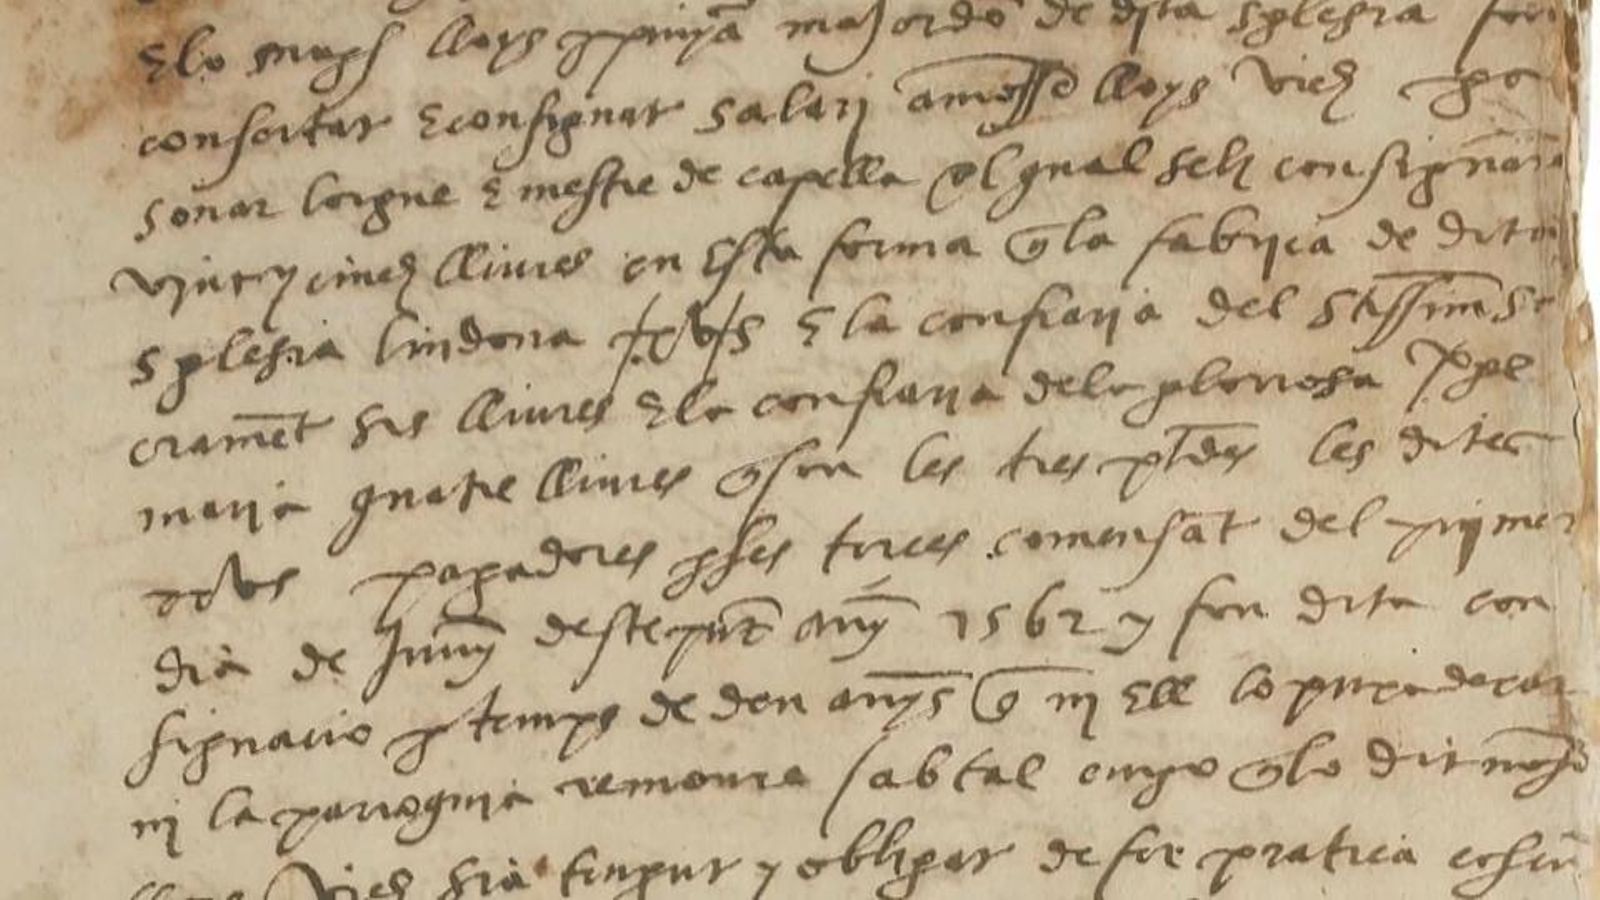 E lo magh lloys ppinyā majordō de dita sglesia fon
consertar E consignar salarj a mossē lloys vich per
sonar lorgue E mestre de capella al qual seli consignarā
vint y cinch lliures en Esta forma q̄ la fabrjca de dita
sglesia lin dona xvs E la confrarja del stissim sa
crament sis lliures E la confrarja dela gloriosa verge
marja quatre lliures q̄ son les tres ptides les dites
pagadores per ses terces comensāt del primer
dia de Juny deste pnt any 1562 y fon dita con
signacio per temps de don anys q̄ nj Ell lo puxa dexar
nj la parroquia remoure sab tal empo q̄ lo dit mossē
vich sia tengut y obligat de fer pratica